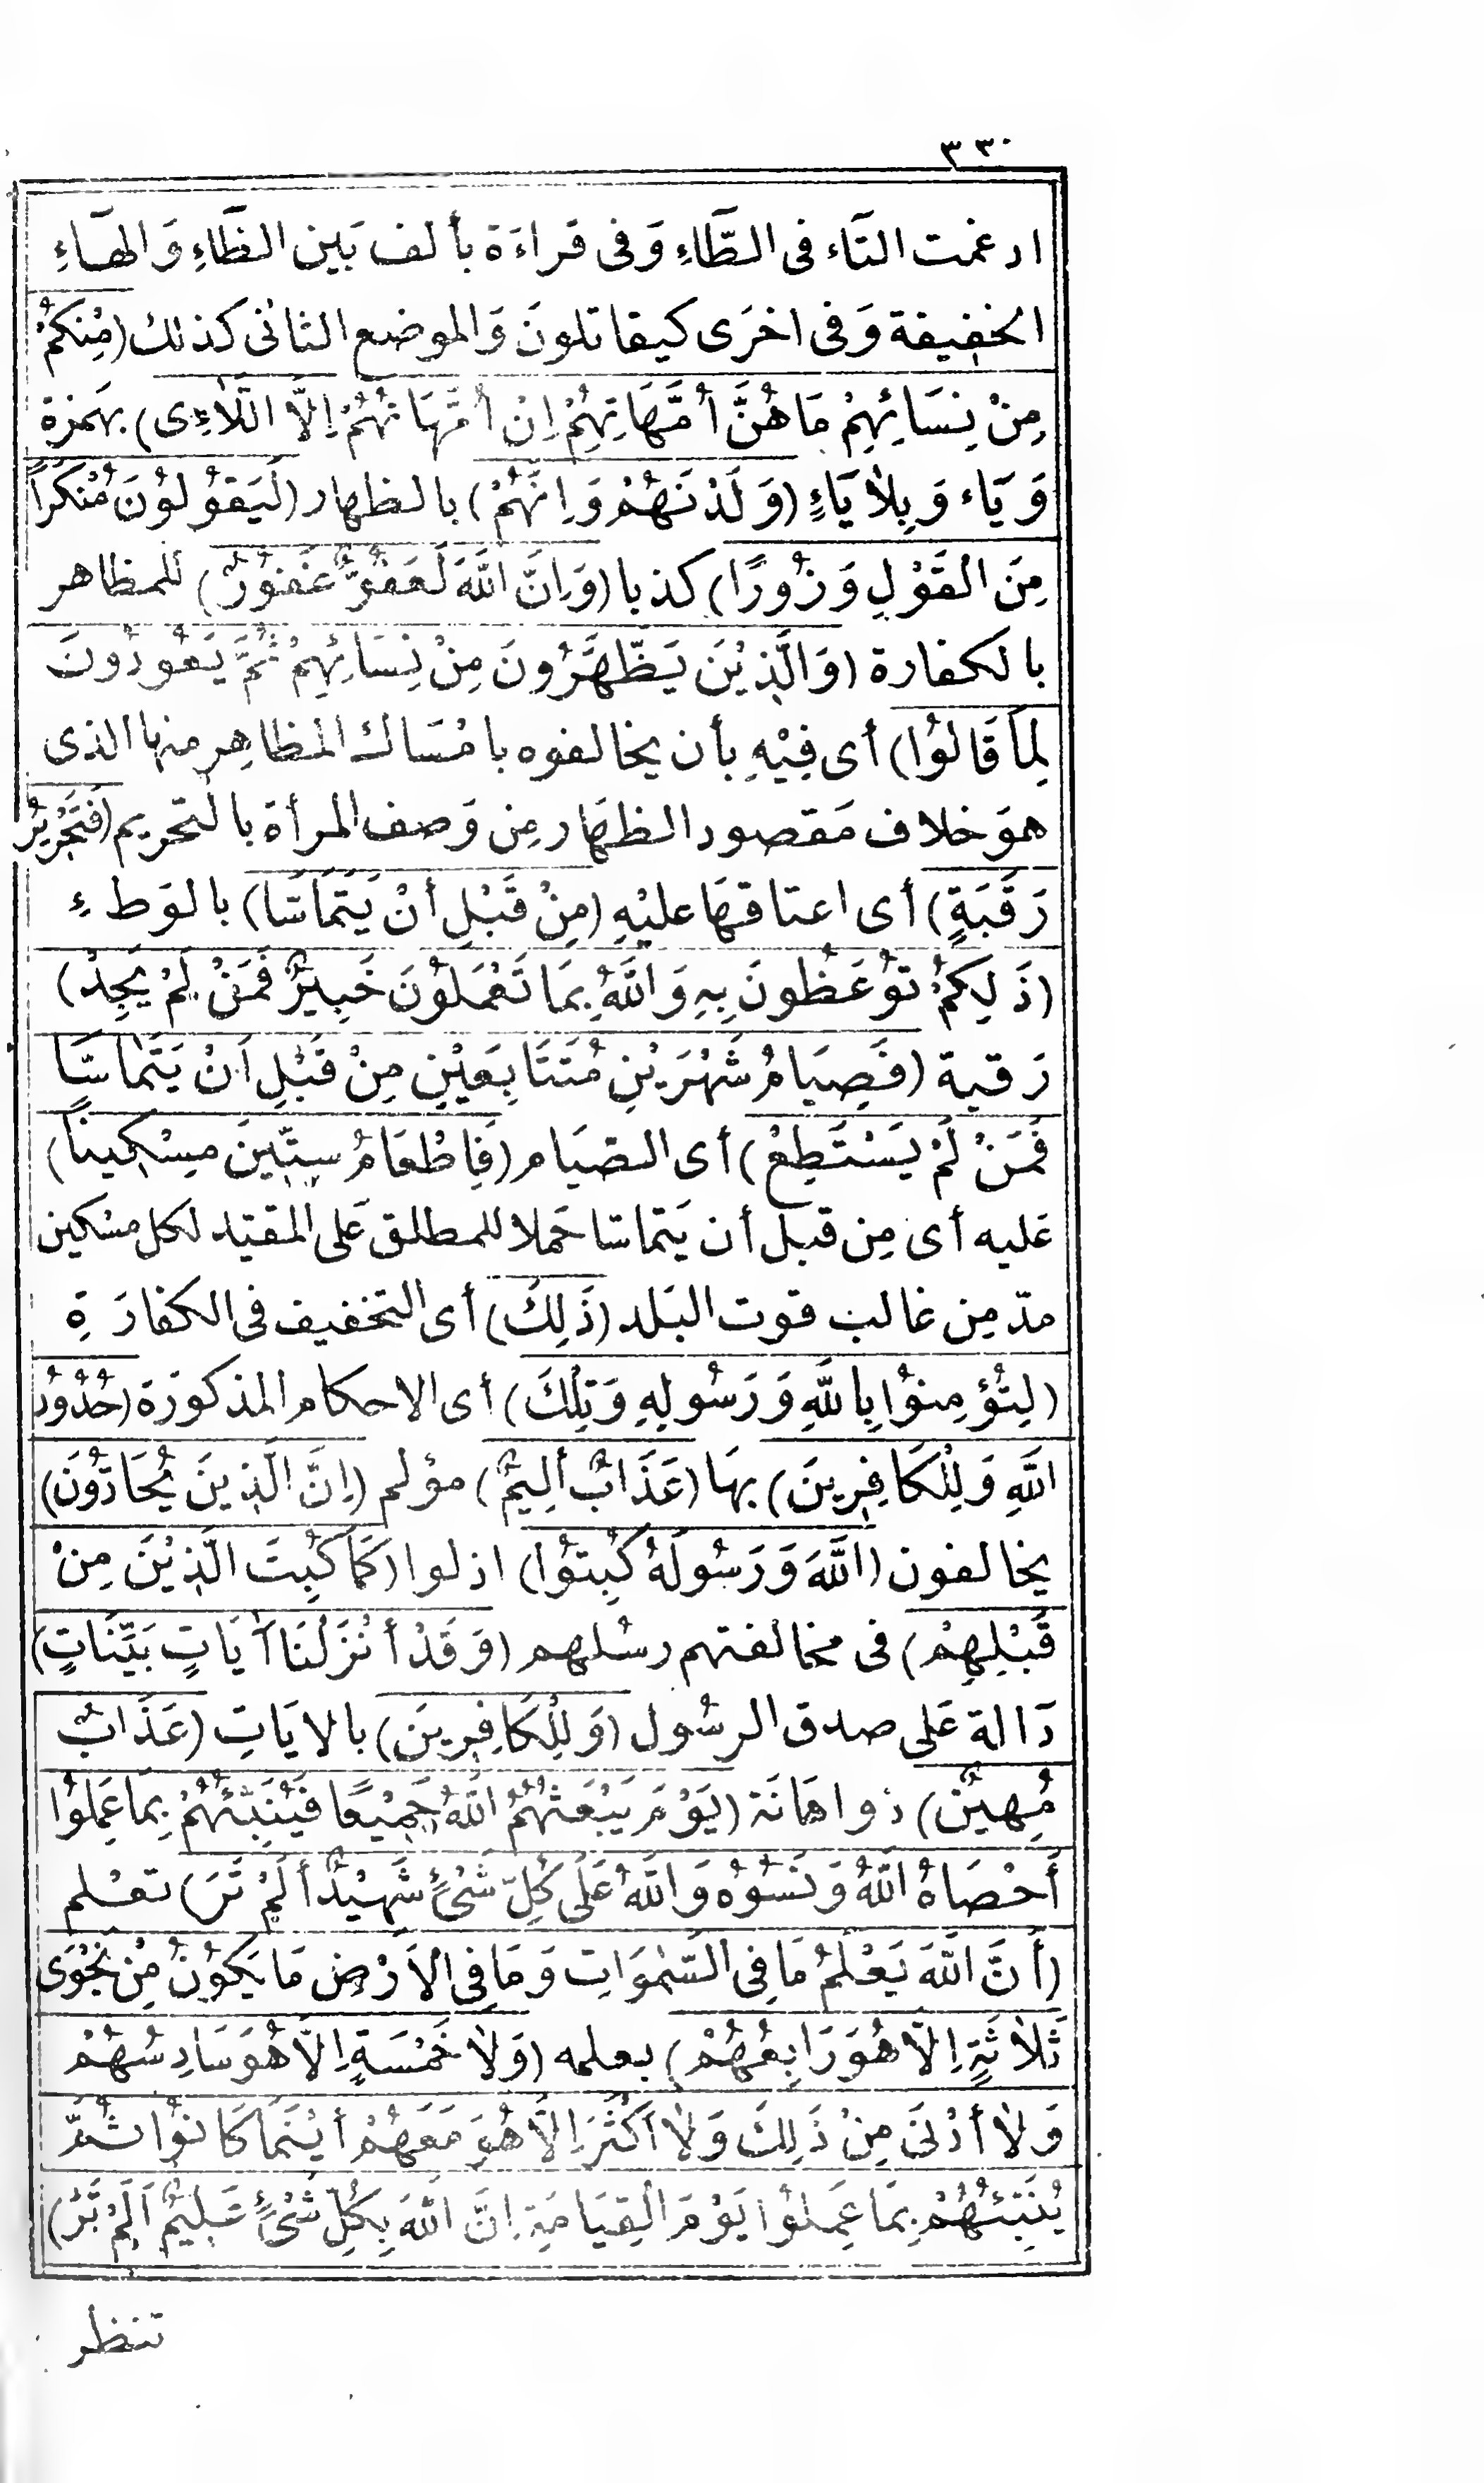 ٣٣٠
ادغمت التَّاء فى الظَّاءِ وَفى قراءَة بألف بَين الظَّاءِ وَالهَاءِ
الخفيفة وَفى اخرَى كيقاتلونَ وَالموضع الثانى كذلك (مِنْكُمْ
مِنْ نِسَائِهِمْ مَا هُنَّ أُمَّهَاتِهِمْ اِنْ أُمَّهَاتُهُمْ اِلَّا اللَّاءِى) بهَمزة
وَيَاء وَبِلَا يَاءٍ (وَلَدْنَهُمْ وَاِنَّهُمْ) بالظهار (لَيَقُوْلُوْنَ مُنْكَرًا
مِنَ الْقَوْلِ وَزُورًا) كذبا (وَاِنَّ اللَّهَ لَعَفُوٌّ غَفُوْرٌ) للمظاهر
بالكفارة (وَالَّذِيْنَ يَظَّهَّرُونَ مِنْ نِسَائِهِمْ ثُمَّ يَعُوْدُونَ
لِمَا قَالُوْا) أى فِيْهِ بأن يخالفوه بامْسَاك المظاهِر منها الذى
هوَ خلاف مَقصود الظهَار مِن وَصف المرأة بالتحريم (فَتَحْرِيْرُ
رَقَبَةٍ) أى اعتاقهَا عليْهِ (مِنْ قَبْلِ أَنْ يَتَمَاسَّا) بالوَطءِ
(ذَلِكُمْ تُوْعَظُونَ بِهِ وَاللَّهُ بِمَا تَعْمَلُوْنَ خَبِيْرٌ فَمَنْ لَمْ يَجِدْ)
رَقبة (فَصِيَامُ شَهْرَيْنِ مُتَتَابِعَيْنِ مِنْ قَبْلِ اَنْ يَتَمَاسَّا
فَمَنْ لَمْ يَسْتَطِعْ) أى الصّيَام (فَاِطْعَامُ سِتِّينَ مِسْكِينًا)
عَليه أى مِن قبل أن يَتماسّا حَملا للمطلق عَلى المقيّد لكل مسْكين
مدّ مِن غالب قوت البَلد (ذَلِكَ) أى التخفيف فى الكفارَةِ
(لِتُؤْمِنُوْا بِاللَّهِ وَرَسُولِهِ وَتِلْكَ) أى الاحكام المذكورَة (حُدُوْدُ
اللَّهِ وَلِلْكَافِرِينَ) بهَا (عَذَابٌ أَلِيْمٌ) مؤلم (اِنَّ الَّذِينَ يُحَادُّوْنَ)
يخالفون (اللَّهَ وَرَسُولَهُ كُبِتُوْا) اذلوا (كَمَا كُبِتَ الَّذِيْنَ مِنْ
قَبْلِهِمْ) فى مخالفتهم رسُلهم (وَقَدْ أَنْزَلْنَا آيَاتٍ بَيِّنَاتٍ)
دَالة عَلى صدق الرسُول (وَلِلْكَافِرِينَ) بالايَاتِ (عَذَابٌ
مُهِيْنٌ) ذواهَانَة (يَوْمَ يَبْعَثُهُمُ اللَّهُ جَمِيْعًا فَيُنَبِّئُهُمْ بِمَا عَمِلُوْا
أَحْصَاهُ اللَّهُ وَنَسُوْهُ وَاللَّهُ عَلَى كُلِّ شَىْءٍ شَهِيْدٌ أَلَمْ تَرَ) تعْلم
(أَنَّ اللَّهَ يَعْلَمُ مَا فِى السَّمٰوَاتِ وَمَا فِى الْأَرْضِ مَا يَكُوْنُ مِنْ نَجْوَى
ثَلَاثَةٍ اِلَّا هُوَ رَابِعُهُمْ) بعلمه (وَلَا خَمْسَةٍ اِلَّا هُوَ سَادِسُهُمْ
وَلَا أَدْنَى مِنْ ذَلِكَ وَلَا اَكْثَرَ اِلَّا هُوَ مَعَهُمْ أَيْنَمَا كَانُوْا ثُمَّ
يُنَبِّئُهُمْ بِمَا عَمِلُوْا يَوْمَ الْقِيَامَةِ اِنَّ اللَّهَ بِكُلِّ شَىْءٍ عَلِيْمٌ اَلَمْ تَرَ)
تنظر